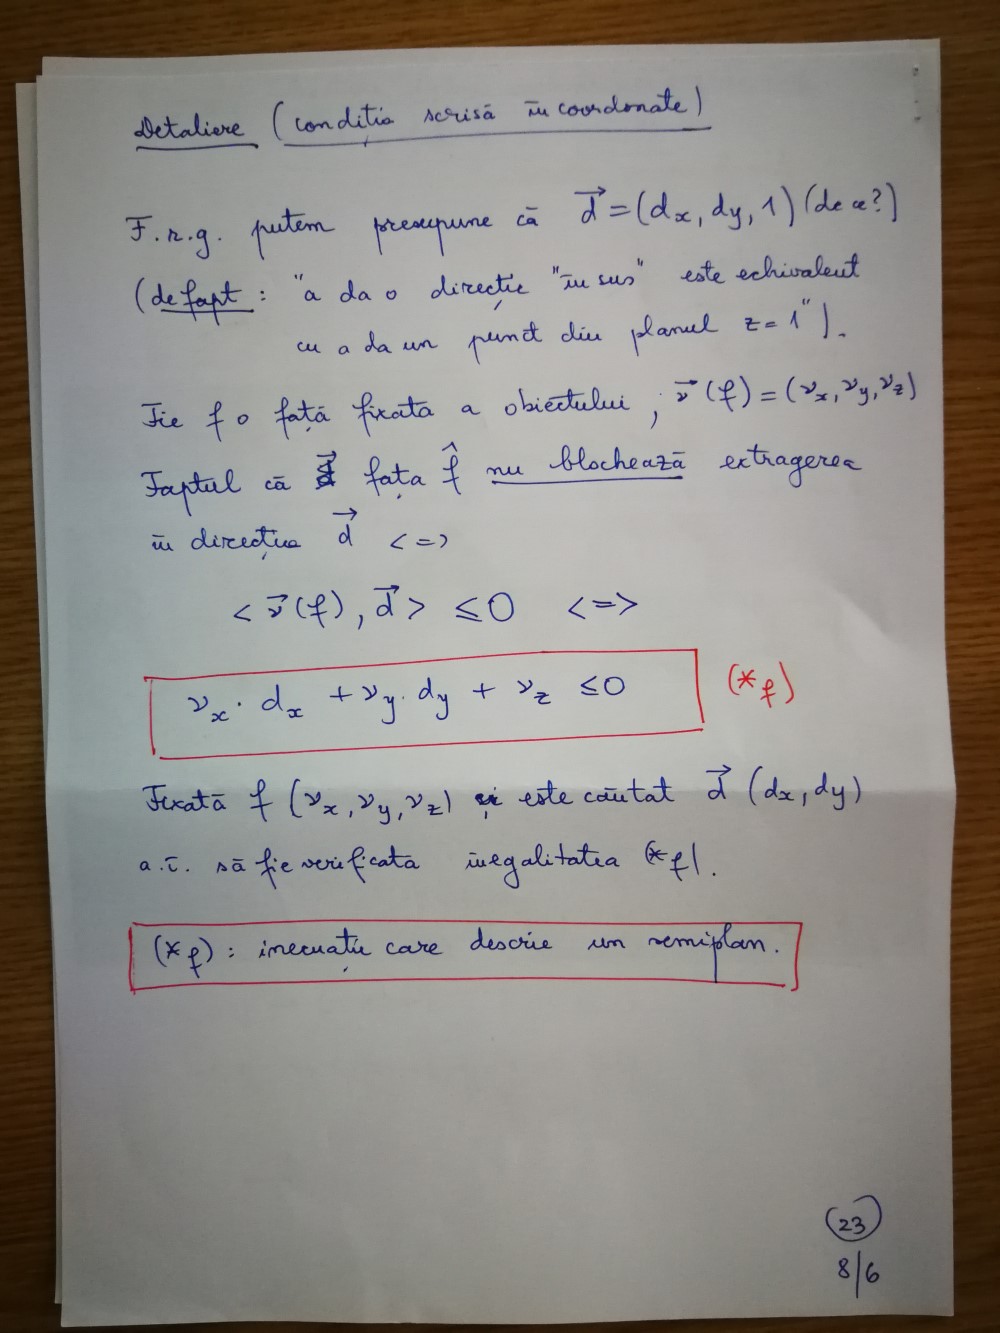 Detaliere (condiția scrisă în coordonate)
F.r.g. putem presupune că d⃗ = (dx, dy, 1) (de ce?)
(de fapt : "a da o direcție "în sus" este echivalent
cu a da un punct din planul z=1").
Fie f o față fixată a obiectului, ν⃗(f) = (νx, νy, νz)
Faptul că fața f̂ nu blochează extragerea
în direcția d⃗ <=>
< ν⃗(f), d⃗ > ≤ 0 <=>
νx · dx + νy · dy + νz ≤ 0 (*f)
Fixată f (νx, νy, νz) și este căutat d⃗ (dx, dy)
a.î. să fie verificată inegalitatea (*f).
(*f) : inecuație care descrie un semiplan.
23
8/6